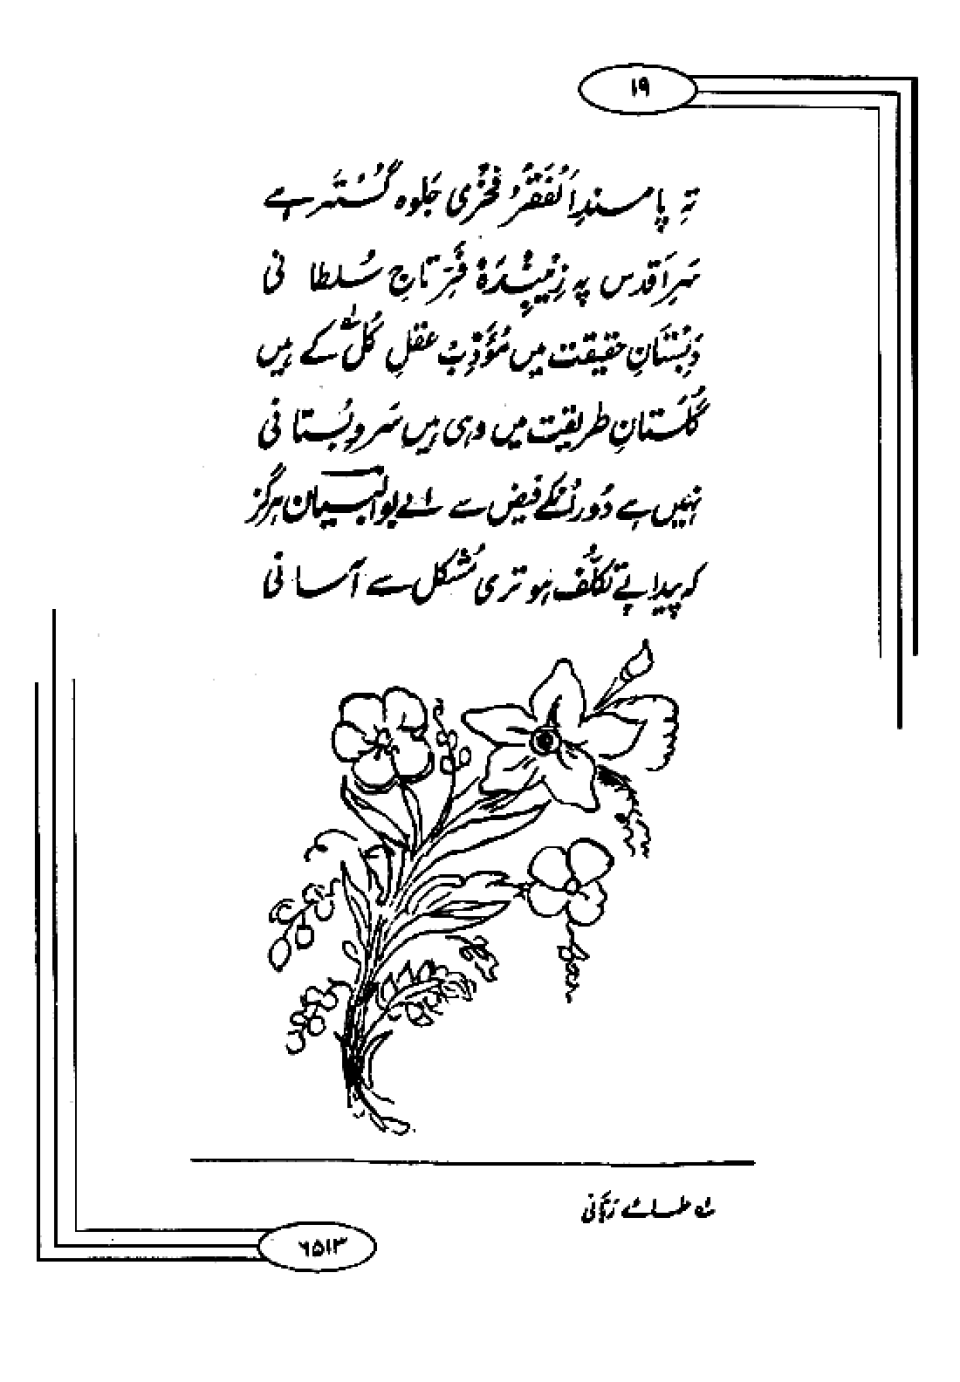 ۱۹
تہِ پا مسندِ اَلْفَقْرُ فَخْرِی جلوہ گُسْتَر ہے
سَرِ اَقدس پہ زِیبِنْدَہ فَرِّ تاجِ سُلطانی
دَبِسْتَانِ حقیقت میں مُؤَدِّب عقلِ کُل کے ہیں
گلستانِ طریقت میں وہی ہیں سَروِ بُستانی
نہیں ہے دُور اُنکے فیض سے اے بوالبیان ہرگز
کہ پیدا بے تکلُّف ہو تری مُشکل سے آسانی
۶۵۱۳